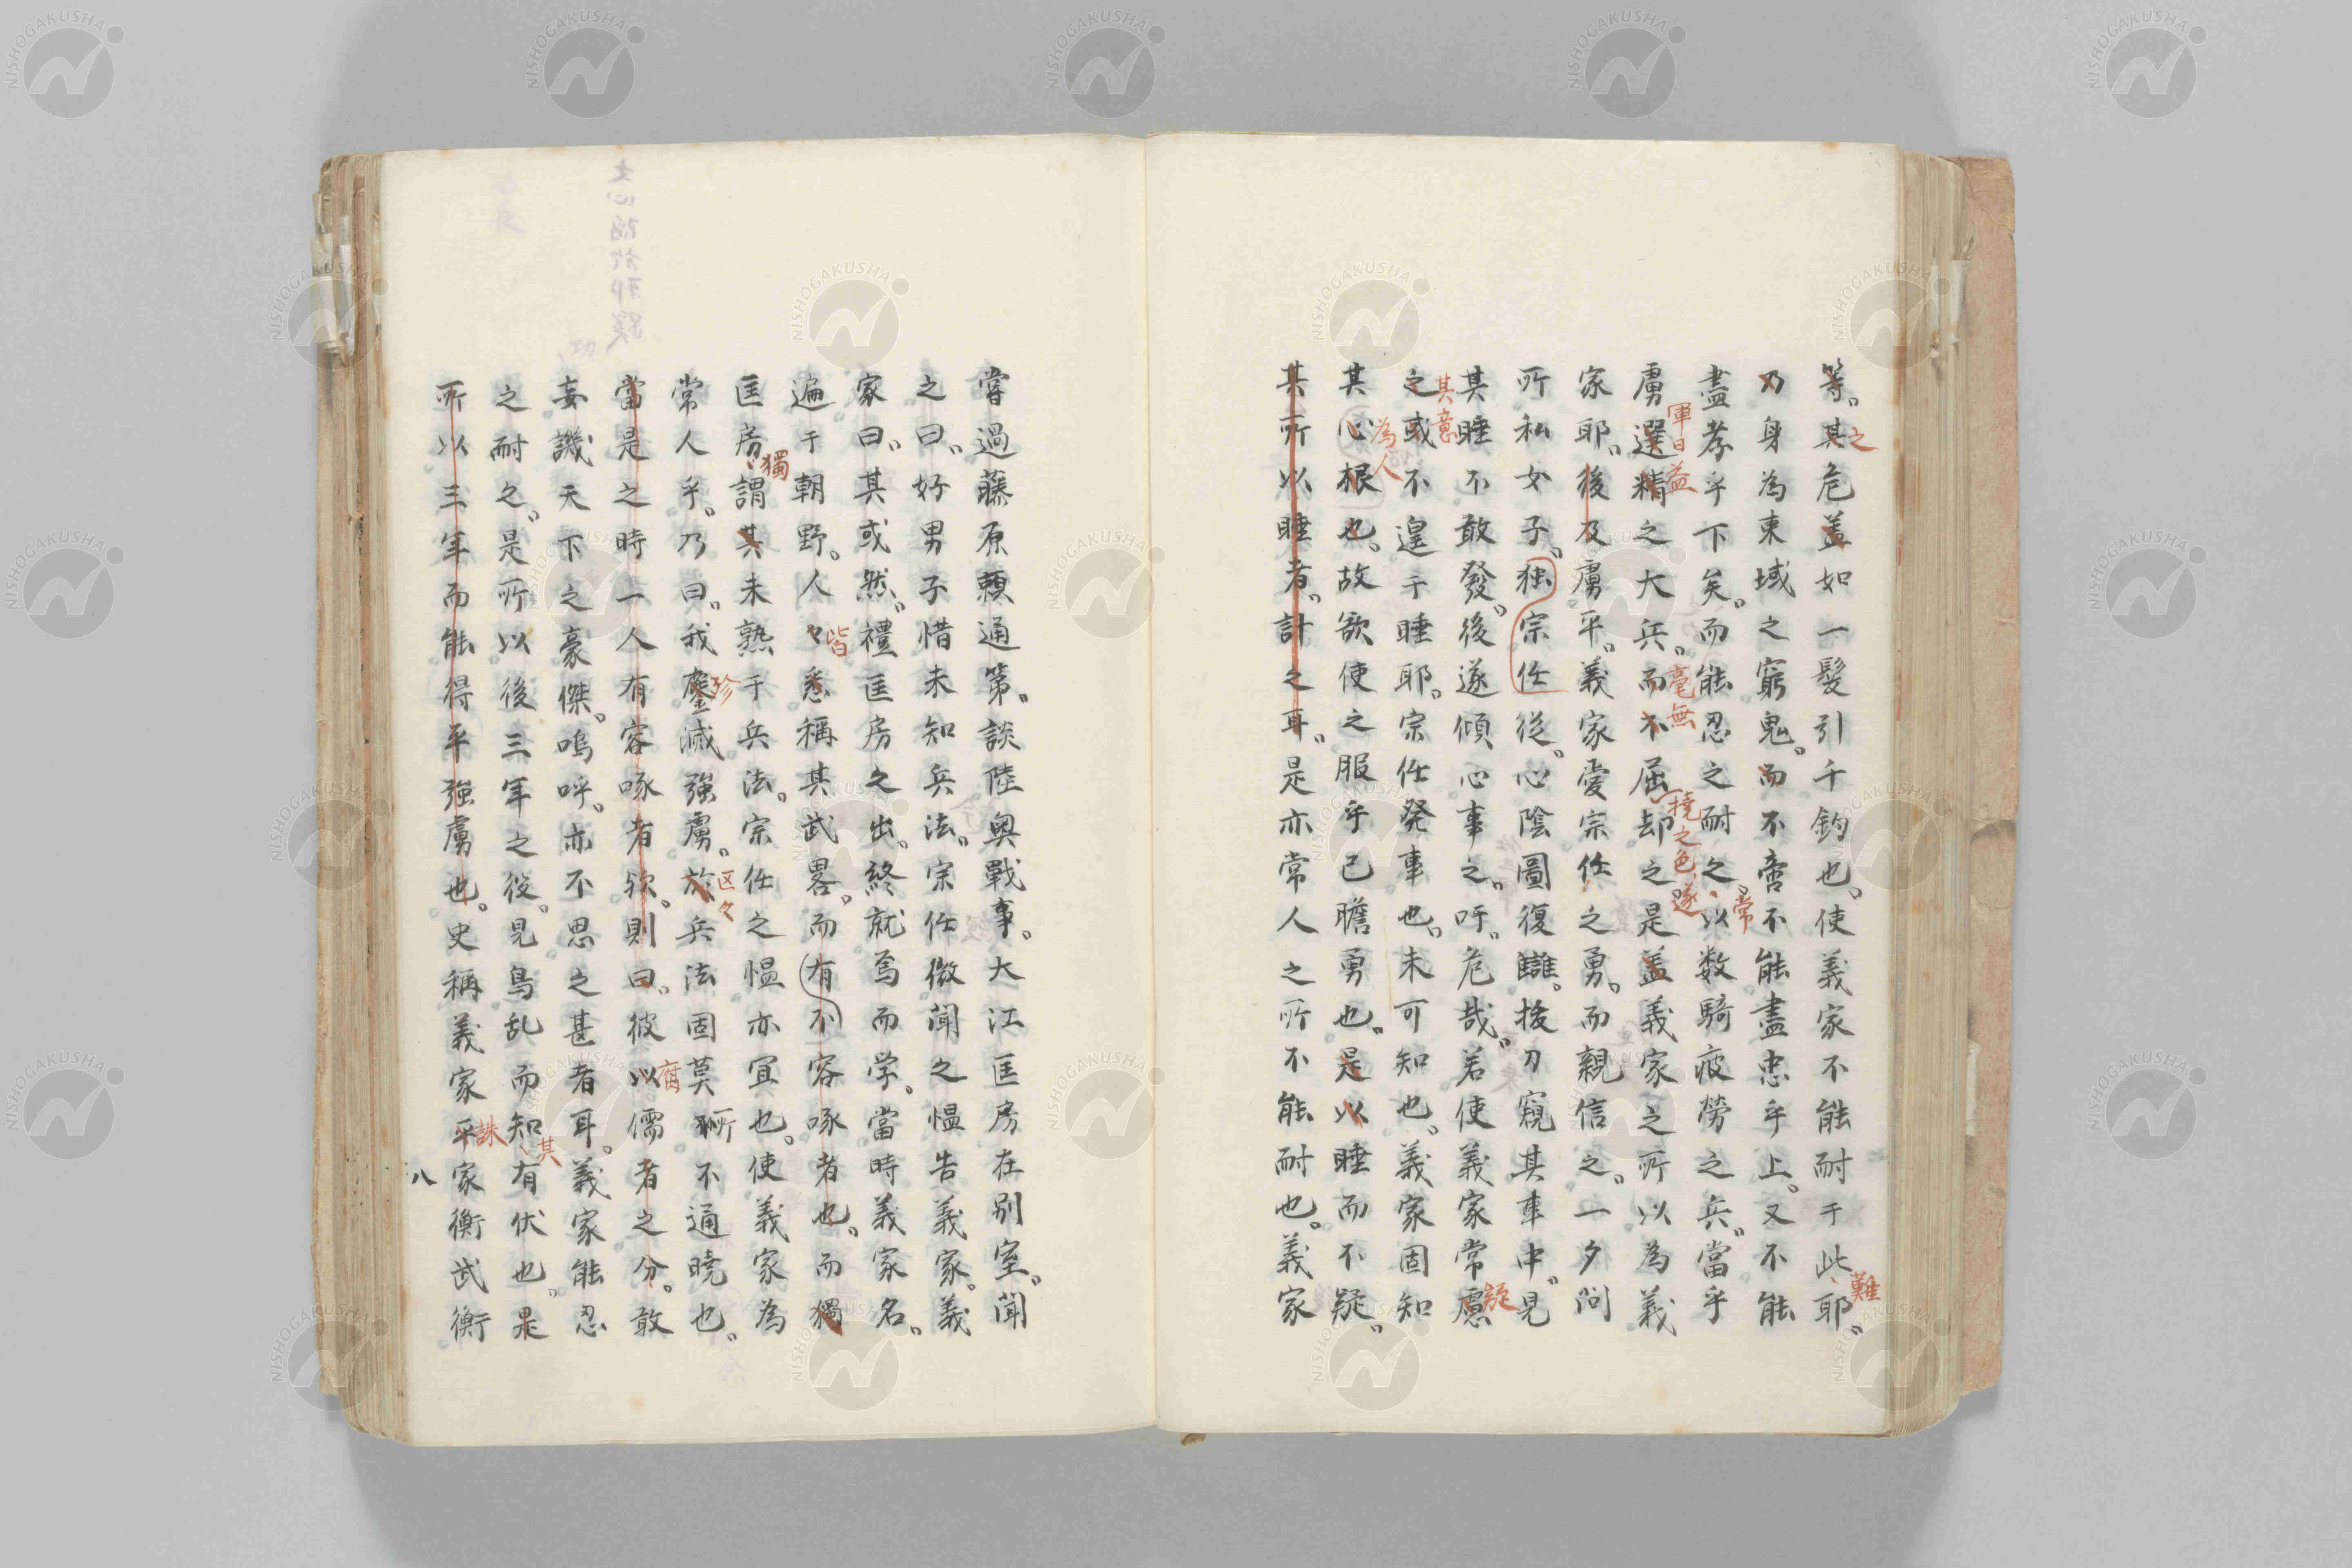 等。其危盖如一髮引千鈞也。使義家不能耐于此耶。
之
難
乃身為東域之窮鬼。而不啻不能盡忠乎上。又不能
盡孝乎下矣。而能忍之耐之。以数騎疲勞之兵。當乎
常
虜選精之大兵。而不屈却之是盖義家之所以為義
軍日益
毫無
撓之色遂
家耶。後及虜平。義家愛宗任之勇。而親信之。一夕問
所私女子。独宗任従。心陰圖復讎。拔刀窺其車中。見
其睡不敢發。後遂傾心事之。吁。危哉。若使義家常慮
疑
之或不遑于睡耶。宗任発事也。未可知也。義家固知
其意
其心根也。故欲使之服乎己膽勇也。是以睡而不疑。
為人
其所以睡者。計之耳。是亦常人之所不能耐也。義家
嘗過藤原頼通第。談陸奥戰事。大江匡房在別室。聞
之曰。好男子惜未知兵法。宗任微聞之愠告義家。義
家曰。其或然。禮匡房之出。終就焉而学。當時義家名。
遍于朝野。人々悉稱其武畧。而有不容啄者也。而獨
皆
匡房謂其未熟于兵法。宗任之愠亦宜也。使義家為
獨
常人乎。乃曰。我鏖滅強虜。於兵法固莫所不通曉也。
殄
区々
當是之時一人有容啄者欤。則曰。彼以儒者之分。敢
腐
妄譏天下之豪傑。嗚呼。亦不思之甚者耳。義家能忍
之耐之。是所以後三年之役。見鳥乱而知有伏也。是
其
所以三年而能得平強虜也。史稱義家平家衡武衡
誅
八